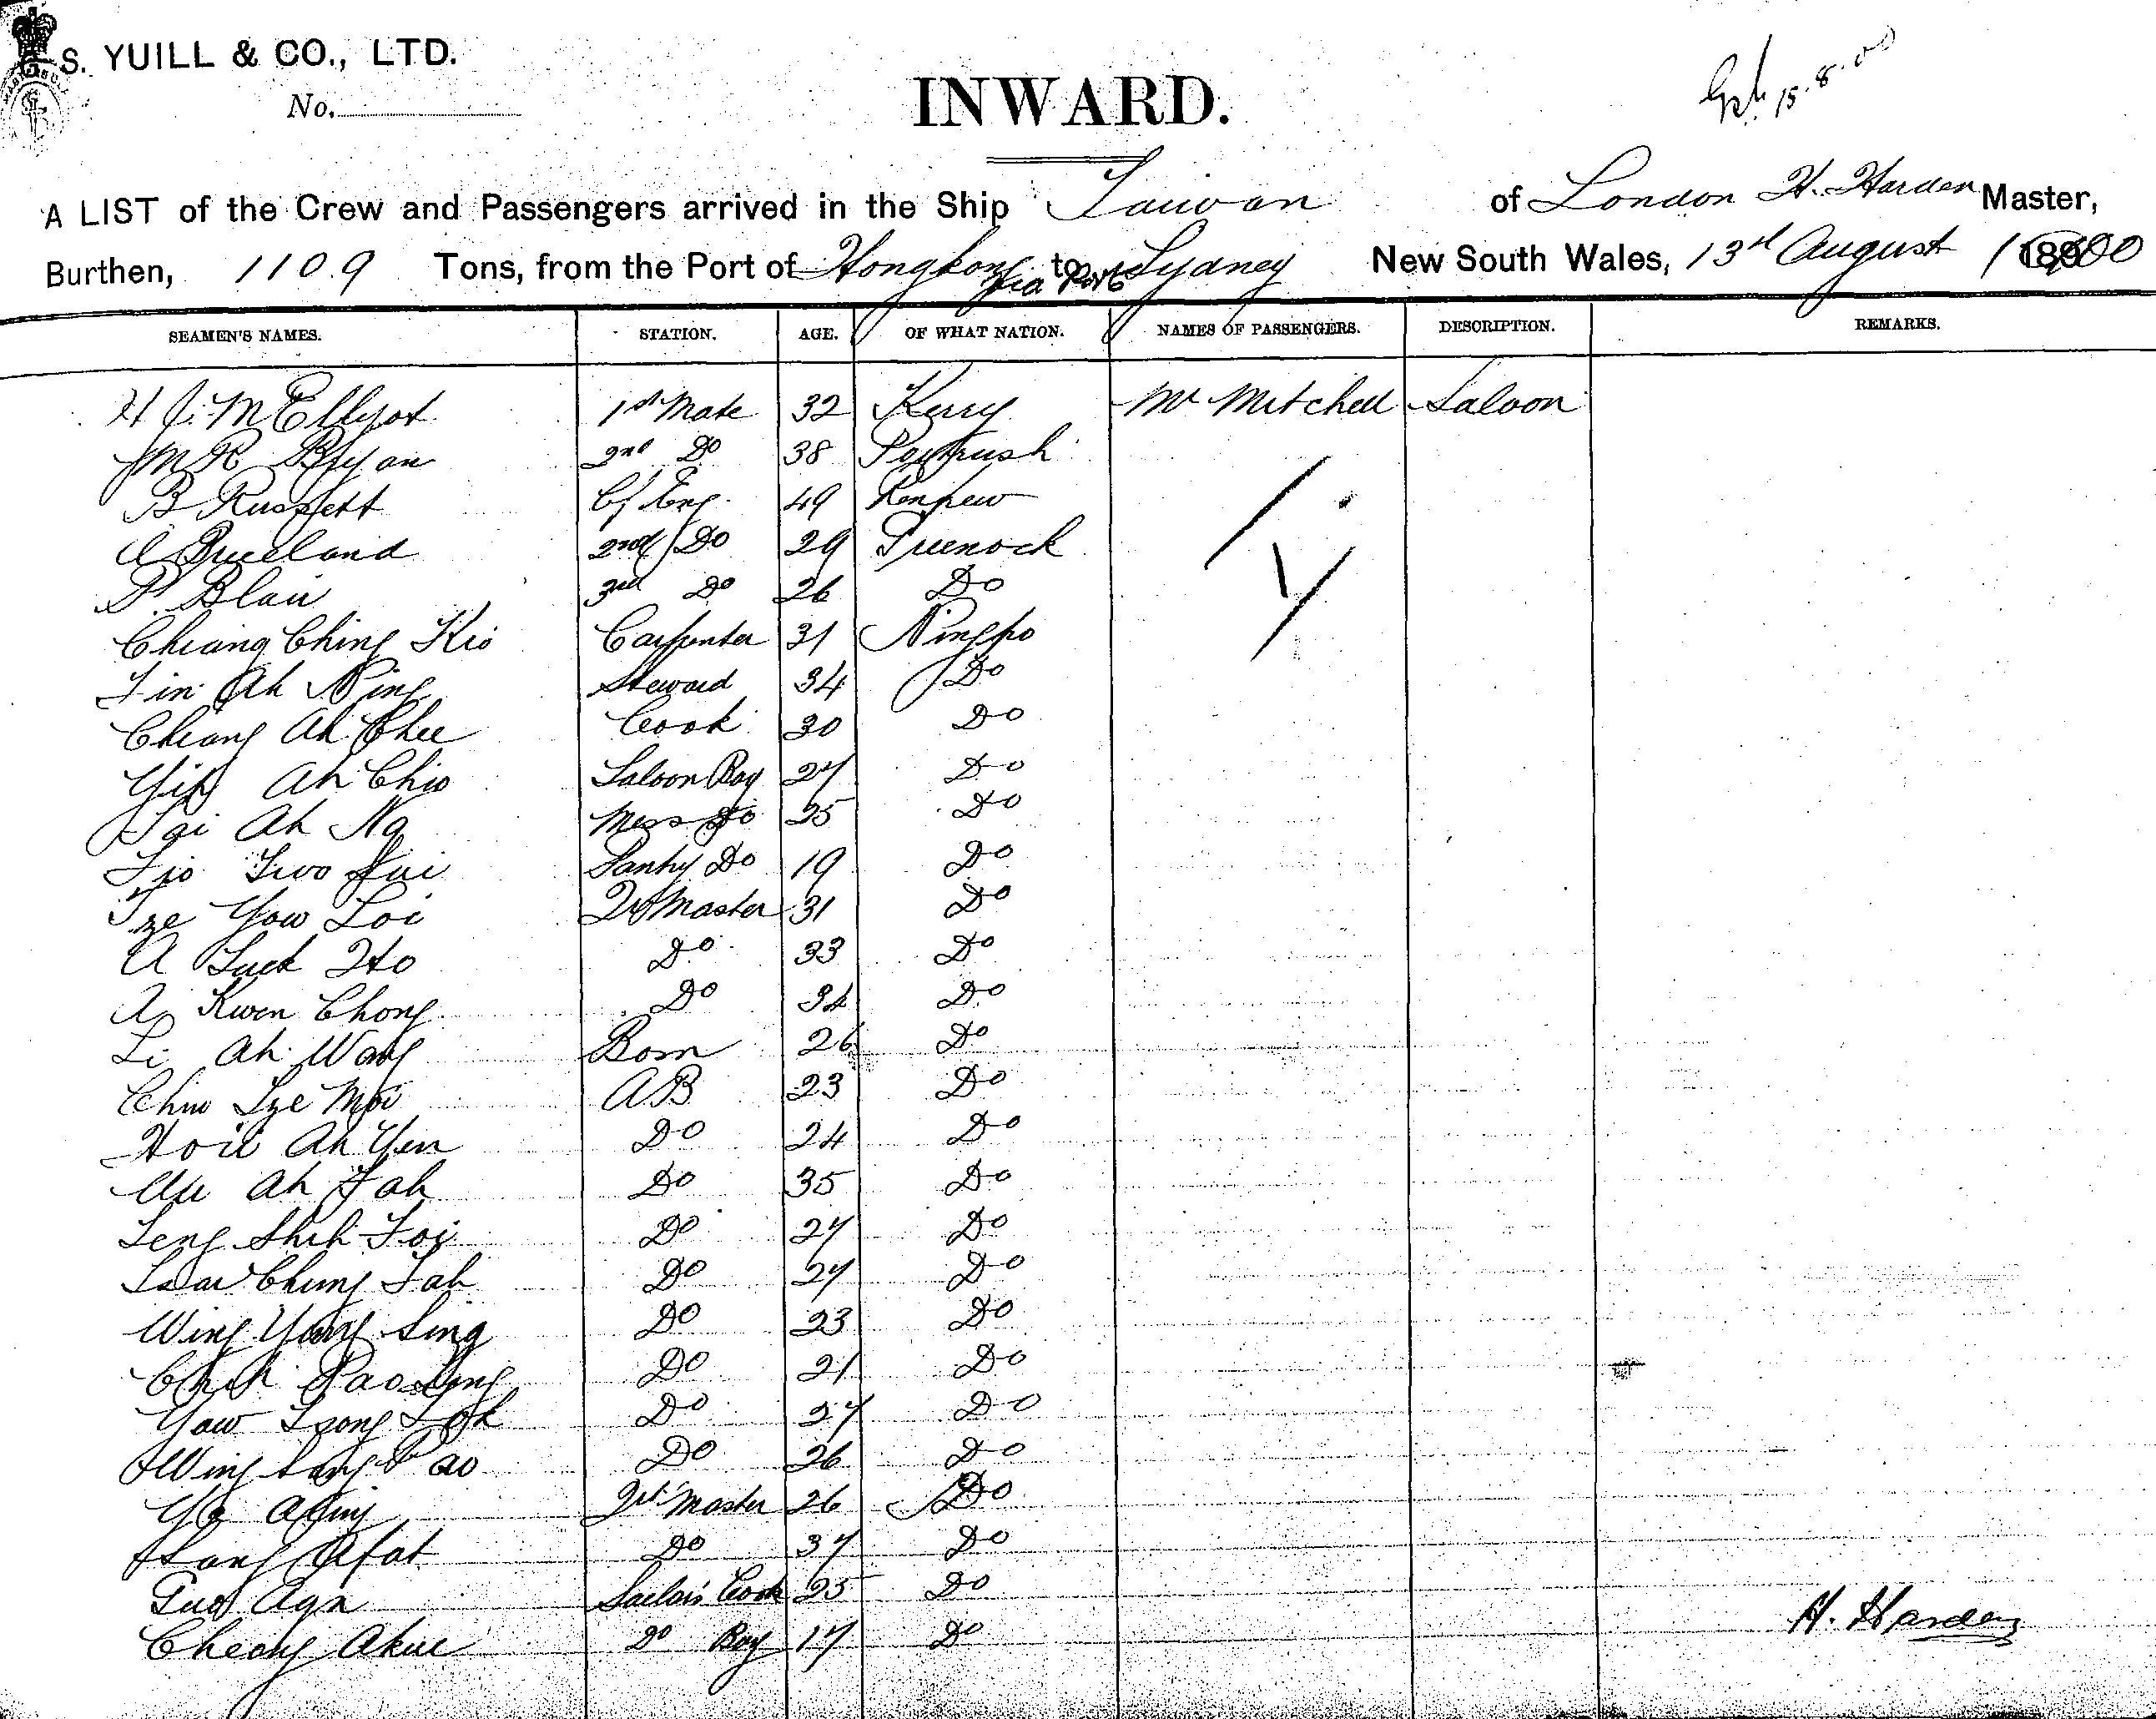 S. YUILL & CO., LTD.
No.
INWARD.
15.8.00
A LIST of the Crew and Passengers arrived in the Ship Taiwan of London H. Harden Master,
Burthen, 1109 Tons, from the Port of Hongkong via Ports to Sydney New South Wales, 13th August 1900
SEAMEN'S NAMES. STATION. AGE. OF WHAT NATION. NAMES OF PASSENGERS. DESCRIPTION. REMARKS.
H J. M Ellyot 1st Mate 32 Kerry Mr Mitchell Saloon
Bryan 2nd Do 38 Portrush
B Russett Cf Eng. 49 Renfrew
2nd Do 29 Greenock
P. Blair 3rd Do 26 Do
Chiang Ching Kio Carpenter 31 Ningpo
Ah Ning Steward 34 Do
Cheang Ah Chee Cook 30 Do
Yip Ah Chio Saloon Boy 27 Do
Ah Na Mess Do 25 Do
Pantry Do 19 Do
Tze Yow Loi Qr Master 31 Do
A Luck Ho Do 33 Do
A Kwen Chong Do 34 Do
Li Ah Wang Bosn 26 Do
Chiu Sze Moi AB 23 Do
Ah Yen Do 24 Do
Ah Fah Do 35 Do
Leng Shih Foi Do 27 Do
Chung Fah Do 27 Do
Wing Yung Sing Do 23 Do
Pao Do 21 Do
Yaw Tsong Do 27 Do
Wing Sung Pao Do 26 Do
Qr Master 26 Do
Afat Do 37 Do
Sailors Cook 25 Do
Cheong Akue Do Boy 17 Do
H. Harden